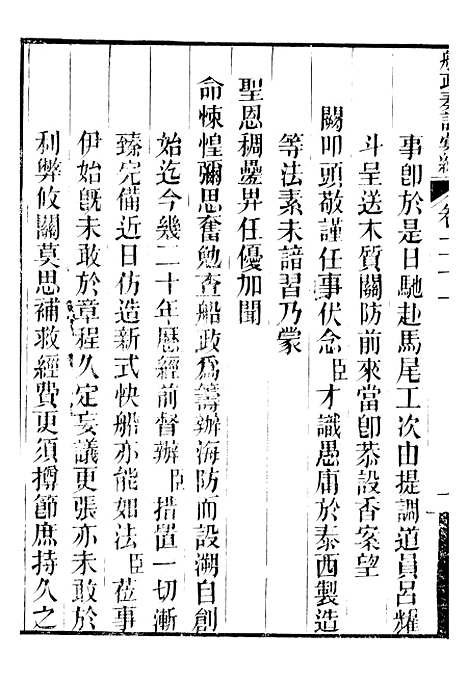 船政奏議彙編 卷二十一 一
事卽於是日馳赴馬尾工次由提調道員呂耀
斗呈送木質關防前來當卽恭設香案望
闕叩頭敬謹任事伏念臣才識愚庸於泰西製造
等法素未諳習乃蒙
聖恩稠疊畀任優加聞
命悚惶彌思奮勉查船政爲籌辦海防而設溯自創
始迄今幾二十年歷經前督辦臣措置一切漸
臻完備近日仿造新式快船亦能如法臣莅事
伊始旣未敢於章程久定妄議更張亦未敢於
利弊攸關莫思補救經費更須撙節庶持久之